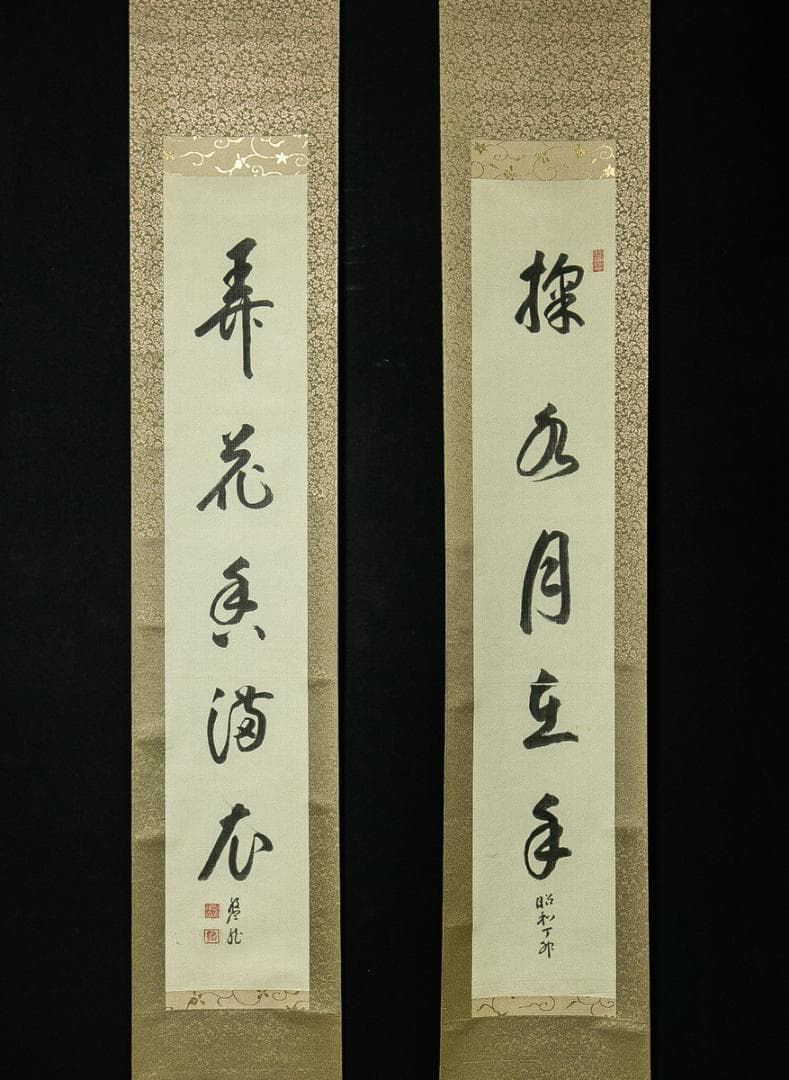 掬水月在手
昭和丁卯
弄花香満衣